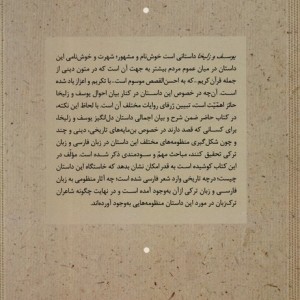 یوسف و زلیخا داستانی است خوش‌نام و مشهور؛ شهرت و خوش‌نامی این
داستان در میان عموم مردم بیشتر به جهت آن است که در متون دینی از
جمله قرآن کریم، به احسن‌القصص موسوم است. با تکریم و اعزاز یاد شده
است. آن‌چه در خصوص این داستان در کنار بیان احوال یوسف و زلیخا،
حائز اهمّیّت است، تبیین ژرفای روایات مختلف آن است. با لحاظ این نکته،
در کتاب حاضر ضمن شرح و بیان اجمالی داستان دل‌انگیز یوسف و زلیخا،
برای کسانی که قصد دارند در خصوص بن‌مایه‌های تاریخی، دینی و چند
و چون شکل‌گیری منظومه‌های مختلف این داستان در زبان فارسی و زبان
ترکی تحقیق کنند، مباحث مهمّ و سودمندی ذکر شده است. مؤلّف در
این کتاب کوشیده است به قدر امکان نشان بدهد که خاستگاه این داستان
چیست؛ درچه تاریخی وارد شعر فارسی شده است؛ چه آثار منظومی به زبان
فارسی و زبان ترکی ازآن به‌وجود آمده است و در نهایت چگونه شاعران
ترک‌زبان در مورد این داستان منظومه‌هایی به‌وجود آورده‌اند.